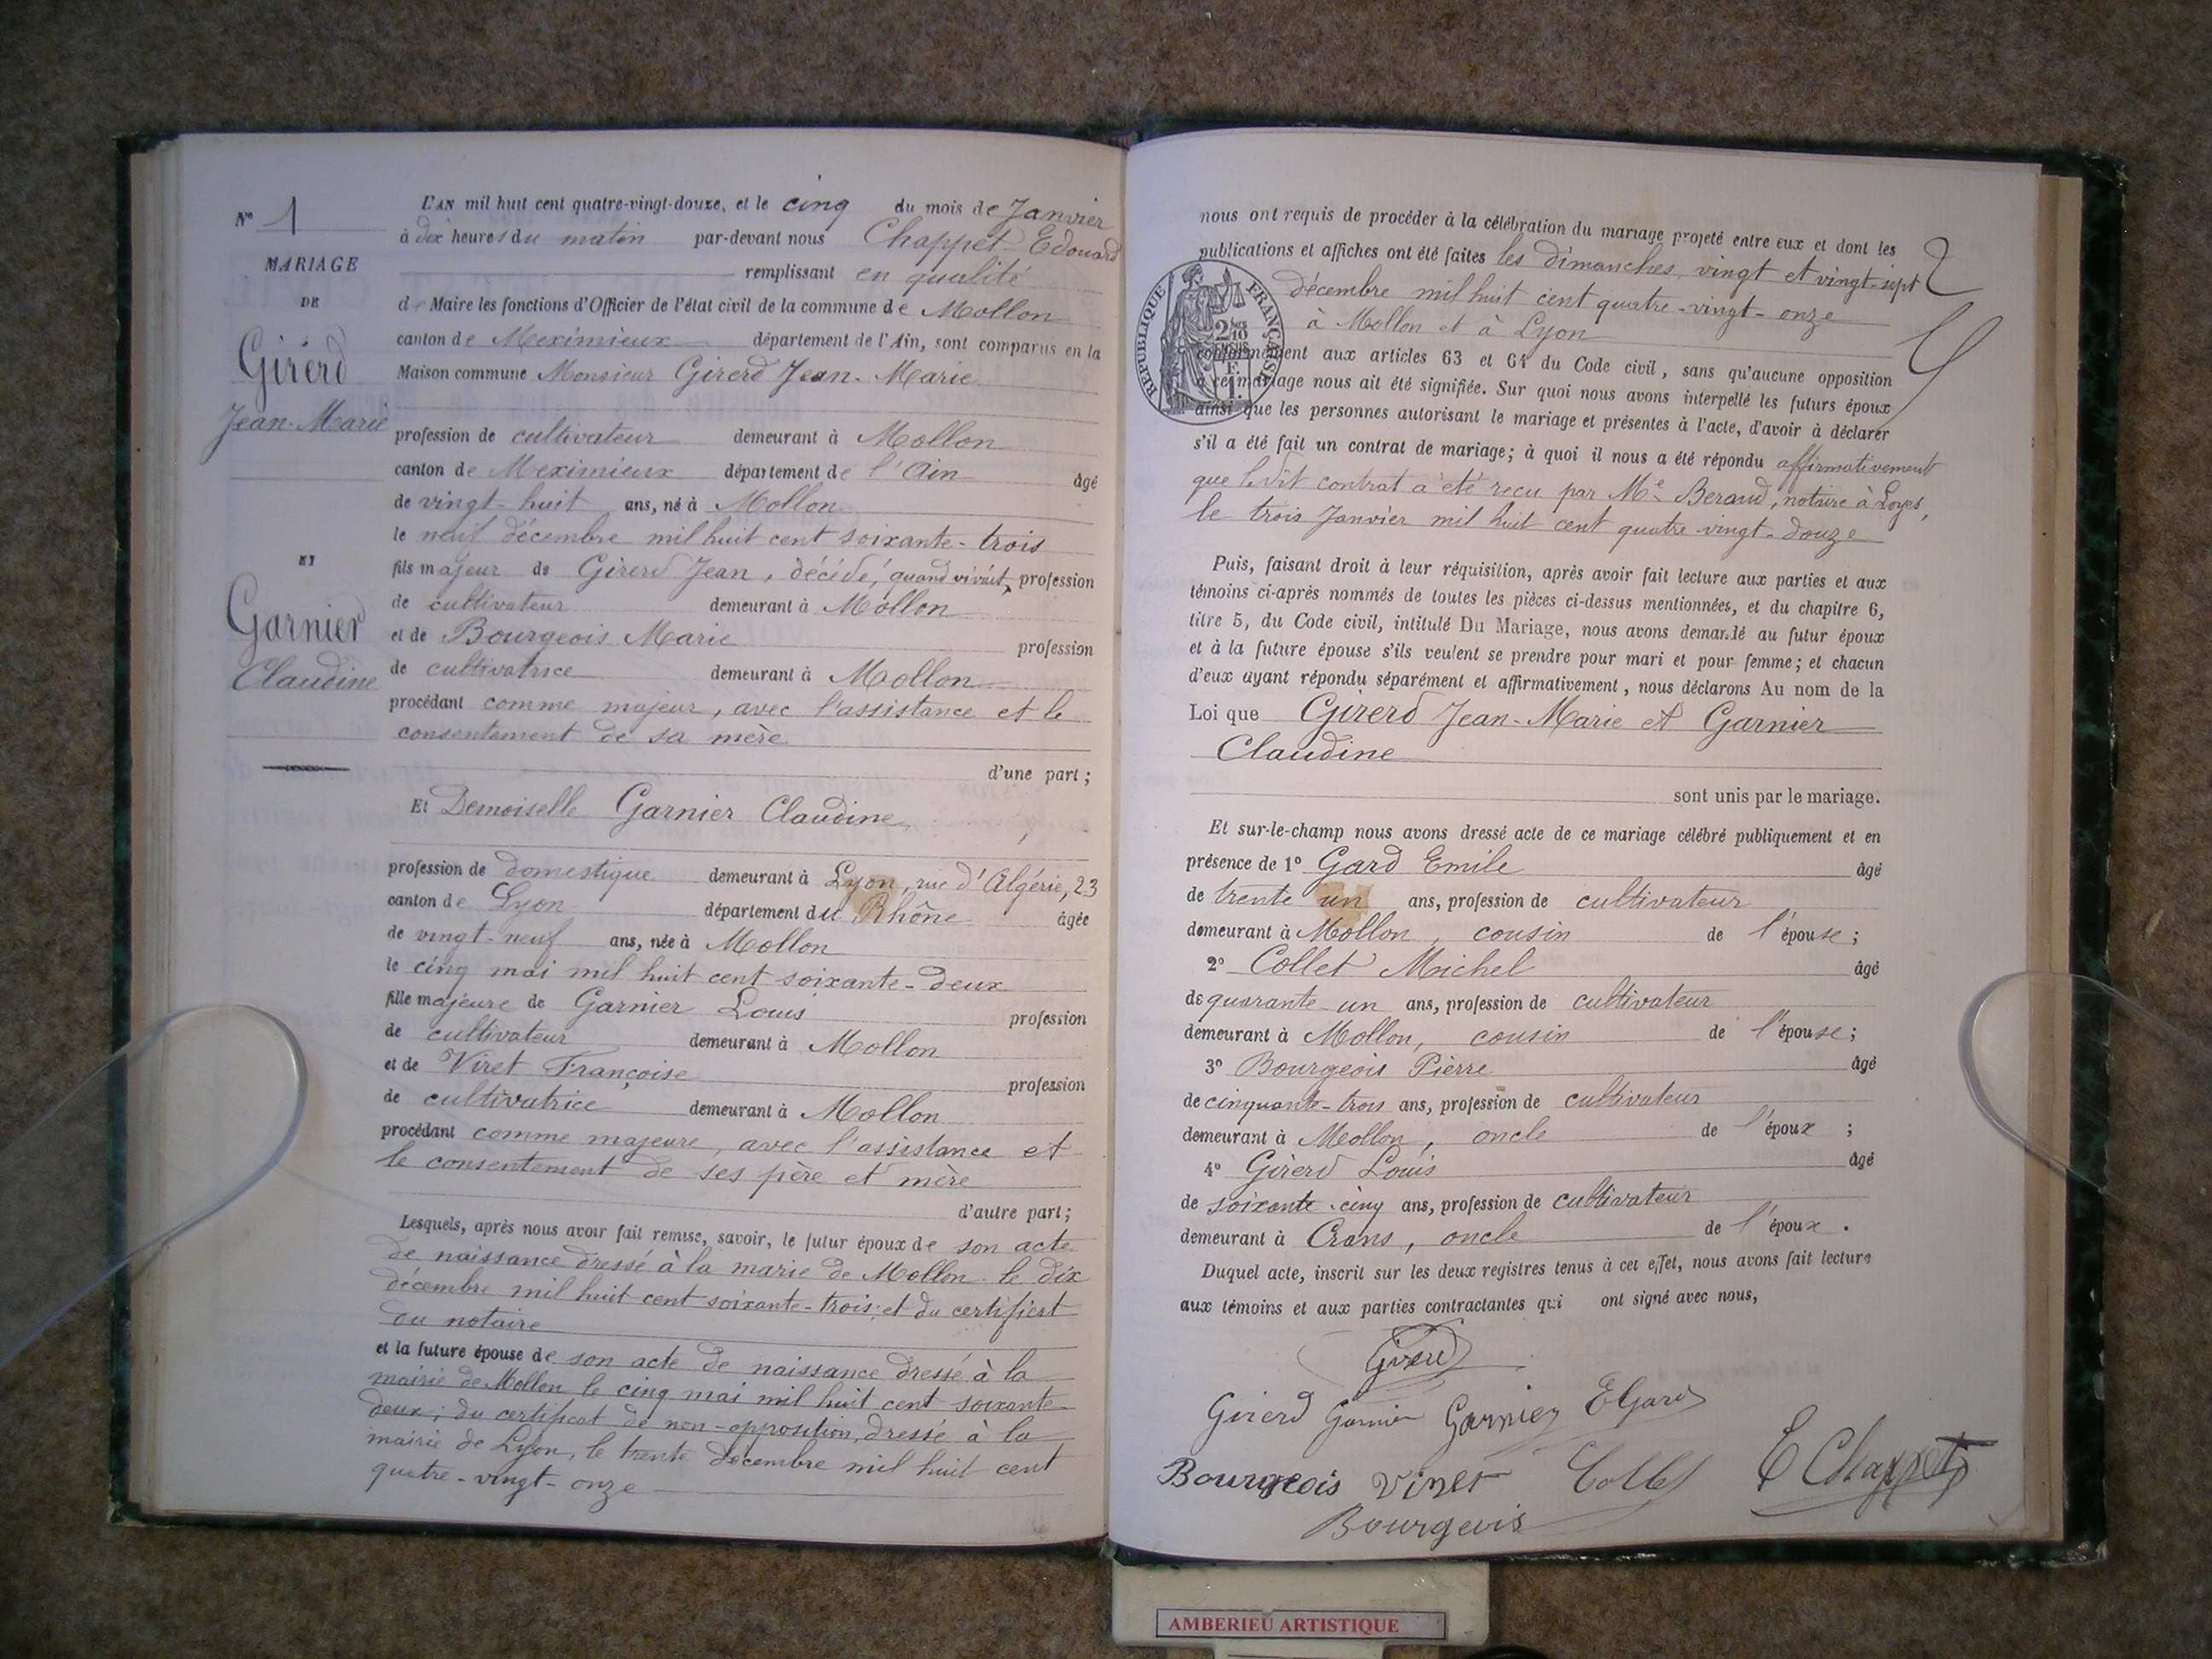 N° 1
MARIAGE
DE
Girerd
Jean-Marie
ET
Garnier
Claudine
L'AN mil huit cent quatre-vingt-douze, et le cinq du mois de Janvier
à dix heures du matin par-devant nous Chappet Edouard
remplissant en qualité
de Maire les fonctions d'Officier de l'état civil de la commune de Mollon
canton de Meximieux département de l'Ain, sont comparus en la
Maison commune Monsieur Girerd Jean-Marie
profession de cultivateur demeurant à Mollon
canton de Meximieux département de l'Ain âgé
de vingt-huit ans, né à Mollon
le neuf décembre mil huit cent soixante-trois
fils majeur de Girerd Jean, décédé, quand vivait, profession
de cultivateur demeurant à Mollon
et de Bourgeois Marie profession
de cultivatrice demeurant à Mollon
procédant comme majeur, avec l'assistance et le
consentement de sa mère
d'une part;
Et Demoiselle Garnier Claudine
profession de domestique demeurant à Lyon, rue d'Algérie, 23
canton de Lyon département du Rhône âgée
de vingt-neuf ans, née à Mollon
le cinq mai mil huit cent soixante-deux
fille majeure de Garnier Louis profession
de cultivateur demeurant à Mollon
et de Viret Françoise profession
de cultivatrice demeurant à Mollon
procédant comme majeure, avec l'assistance et
le consentement de ses père et mère
d'autre part;
Lesquels, après nous avoir fait remise, savoir, le futur époux de son acte
de naissance dressé à la marie de Mollon le dix
décembre mil huit cent soixante-trois; et du certificat
du notaire
et la future épouse de son acte de naissance dressé à la
mairie de Mollon le cinq mai mil huit cent soixante
deux; du certificat de non-opposition, dressé à la
mairie de Lyon, le trente décembre mil huit cent
quatre-vingt-onze
nous ont requis de procéder à la célébration du mariage projeté entre eux et dont les
publications et affiches ont été faites les dimanches, vingt et vingt-sept
décembre mil huit cent quatre-vingt-onze
à Mollon et à Lyon
conformément aux articles 63 et 64 du Code civil, sans qu'aucune opposition
à ce mariage nous ait été signifiée. Sur quoi nous avons interpellé les futurs époux
ainsi que les personnes autorisant le mariage et présentes à l'acte, d'avoir à déclarer
s'il a été fait un contrat de mariage; à quoi il nous a été répondu affirmativement
que le dit contrat a été reçu par Me Beraud, notaire à Loyes,
le trois Janvier mil huit cent quatre-vingt-douze
REPUBLIQUE FRANÇAISE
Puis, faisant droit à leur réquisition, après avoir fait lecture aux parties et aux
témoins ci-après nommés de toutes les pièces ci-dessus mentionnées, et du chapitre 6,
titre 5, du Code civil, intitulé Du Mariage, nous avons demandé au futur époux
et à la future épouse s'ils veulent se prendre pour mari et pour femme; et chacun
d'eux ayant répondu séparément et affirmativement, nous déclarons Au nom de la
Loi que Girerd Jean-Marie et Garnier
Claudine
sont unis par le mariage.
Et sur-le-champ nous avons dressé acte de ce mariage célébré publiquement et en
présence de 1° Gard Emile âgé
de trente un ans, profession de cultivateur
demeurant à Mollon, cousin de l'épouse;
2° Collet Michel âgé
de quarante-un ans, profession de cultivateur
demeurant à Mollon, cousin de l'épouse;
3° Bourgeois Pierre âgé
de cinquante-trois ans, profession de cultivateur
demeurant à Mollon, oncle de l'époux;
4° Girerd Louis âgé
de soixante-cinq ans, profession de cultivateur
demeurant à Crans, oncle de l'époux.
Duquel acte, inscrit sur les deux registres tenus à cet effet, nous avons fait lecture
aux témoins et aux parties contractantes qui ont signé avec nous,
Girerd
Girerd Garnier Garnier E Gard
Bourgeois Viret Collet E Chappet
Bourgeois
AMBERIEU ARTISTIQUE